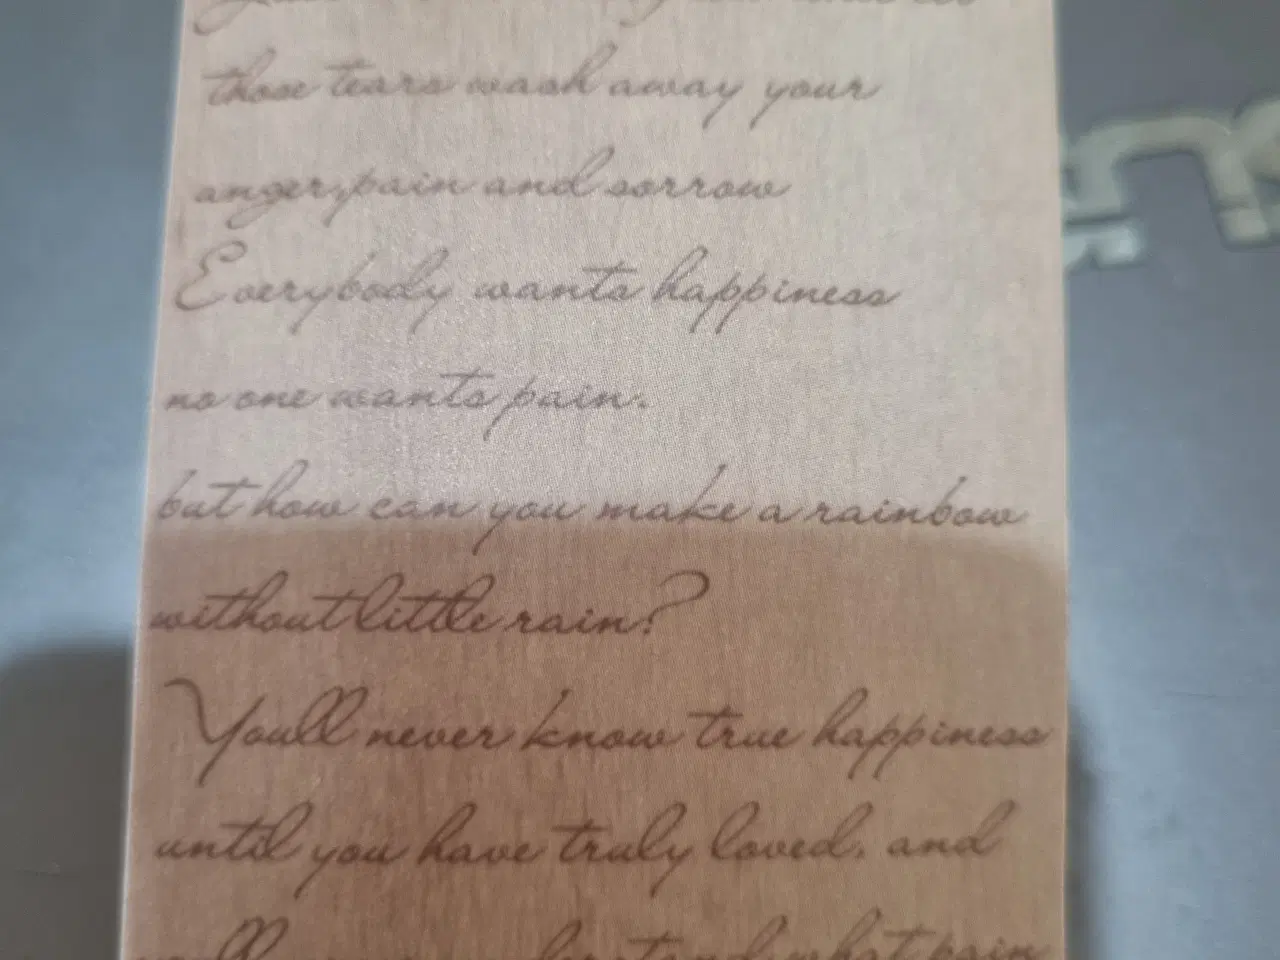 those tears wash away your
anger,pain and sorrow
Everybody wants happiness
no one wants pain.
but how can you make a rainbow
without little rain?
Youll never know true happiness
until you have truly loved, and
what pain